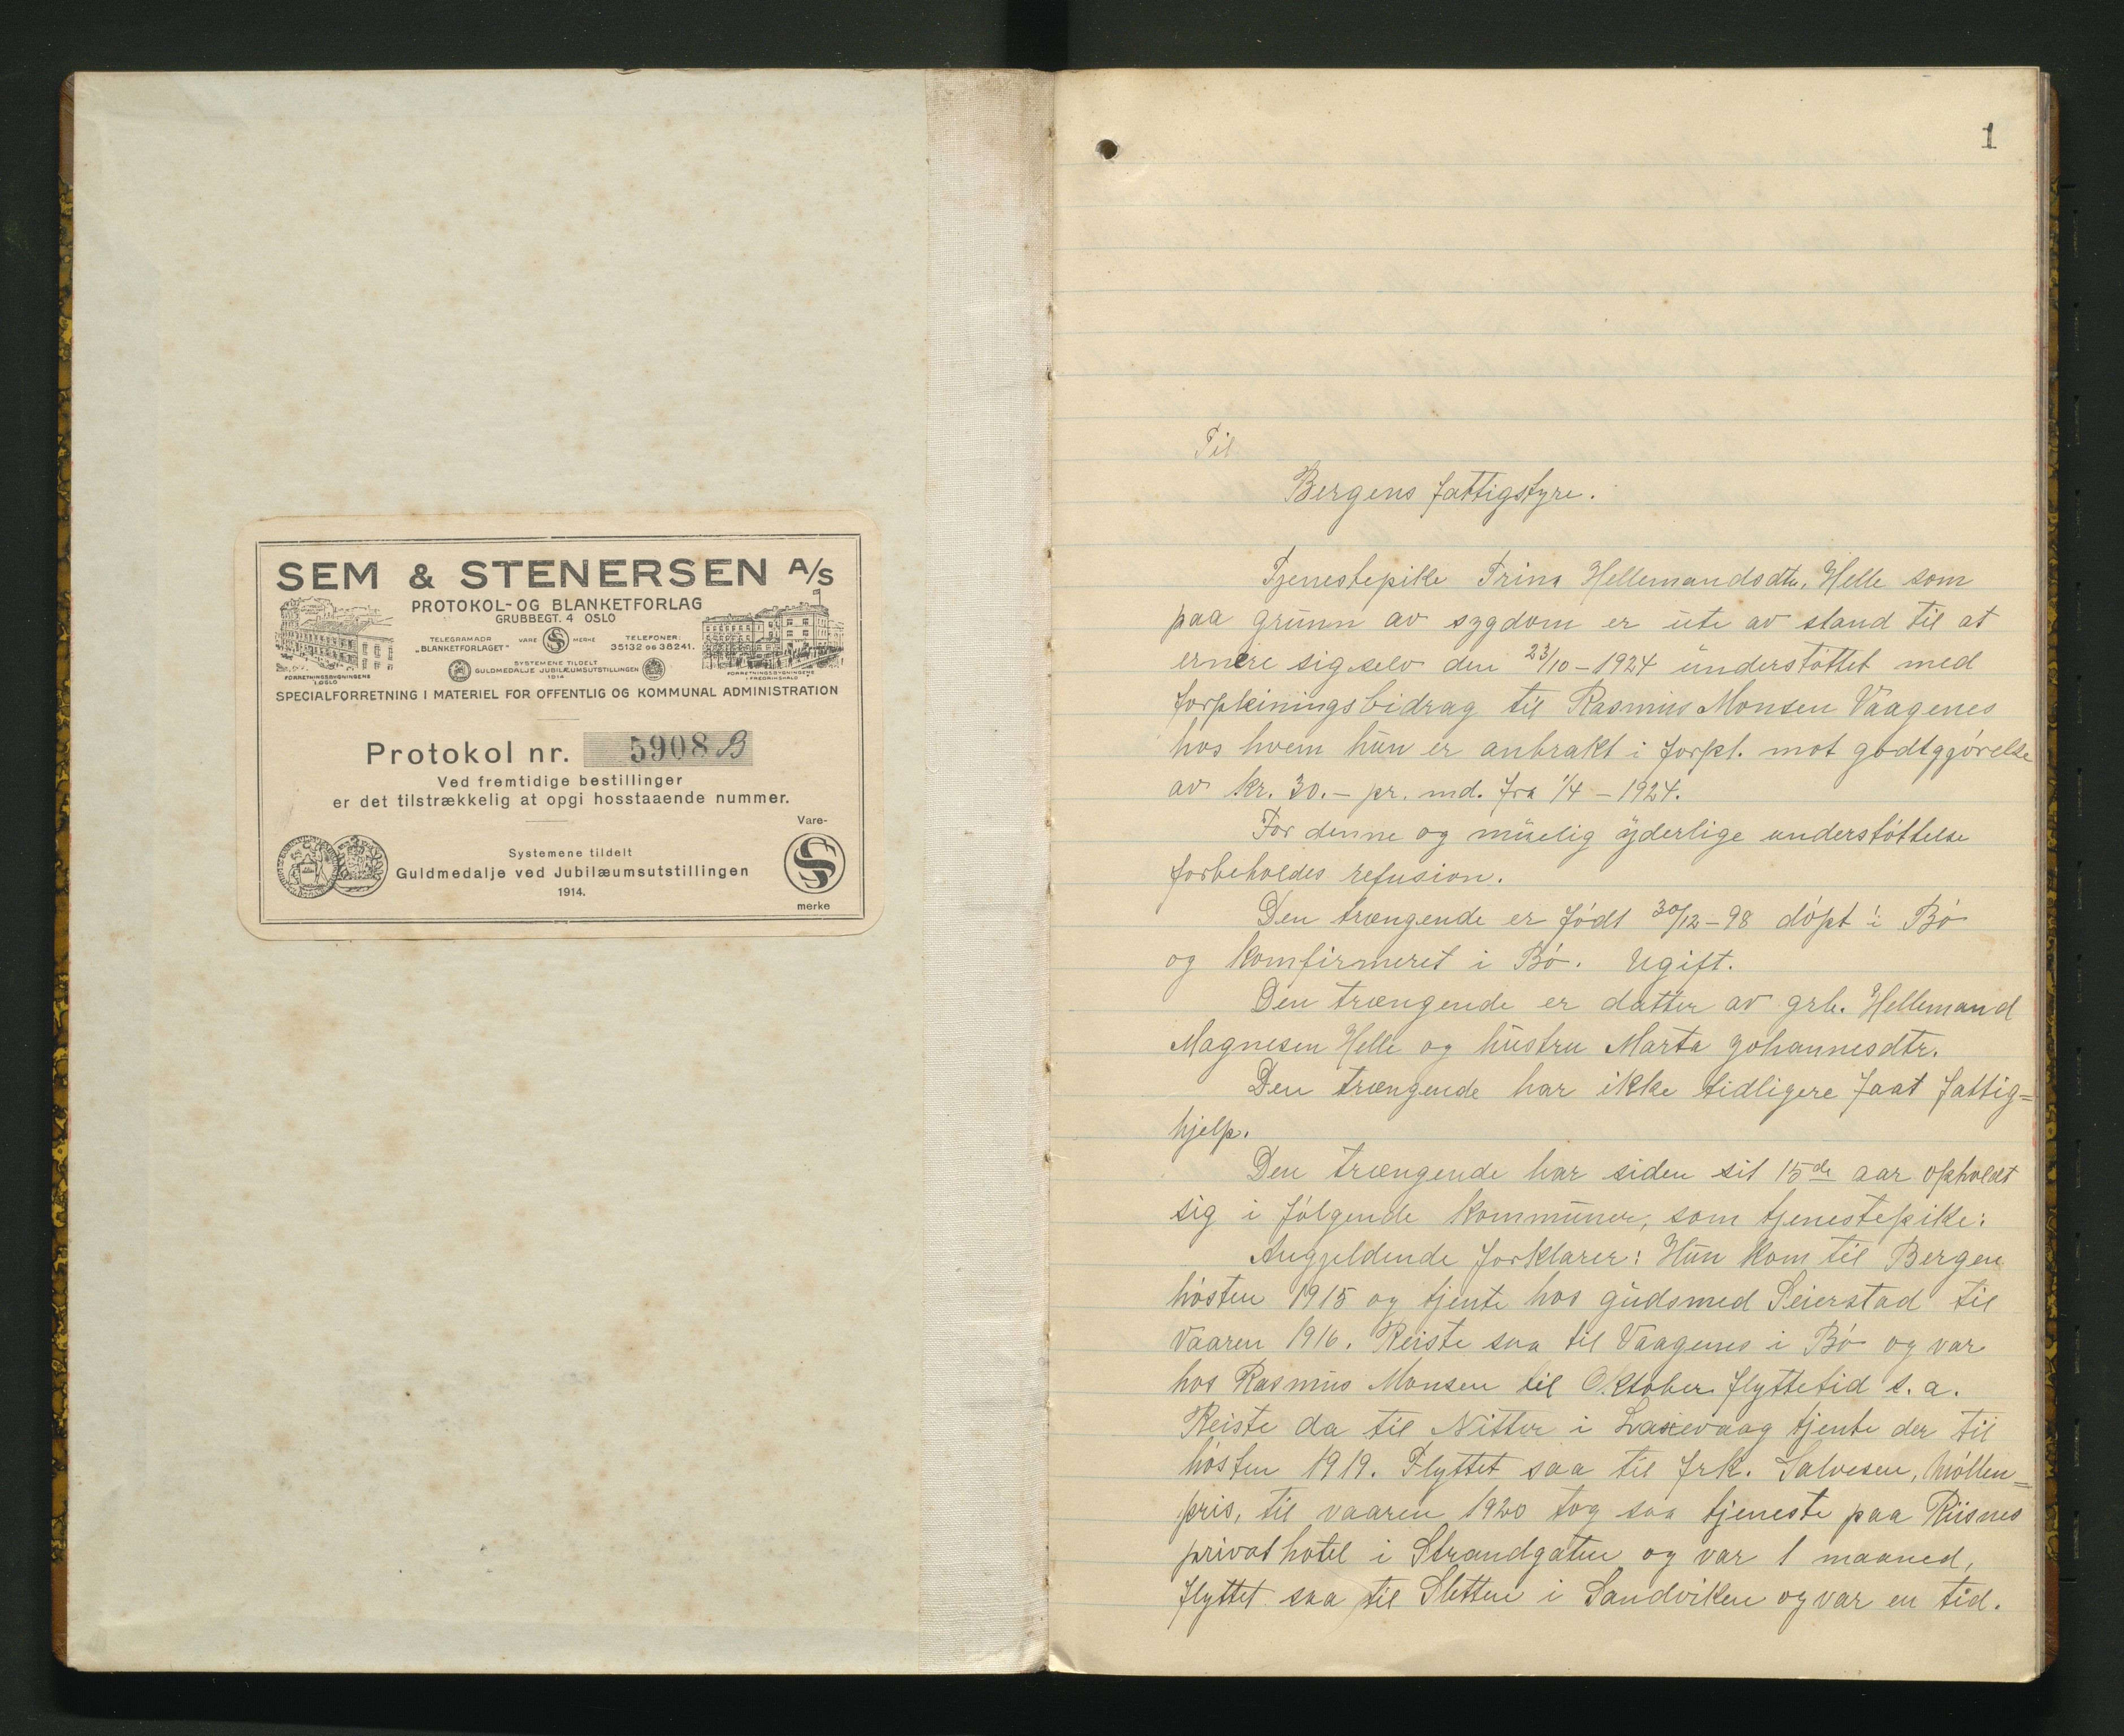 SEM & STENERSEN A/S
PROTOKOL- OG BLANKETFORLAG
GRUBBEGT. 4 OSLO
TELEGRAMADR
„BLANKETFORLAGET"
VARE S MERKE
TELEFONER:
35132 OG 38241.
SYSTEMENE TILDELT
GULDMEDALJE JUBILÆUMSUTSTILLINGEN
1914
FORRETNINGSBYGNINGENE
I OSLO
FORRETNINGSBYGNINGENE
I FREDRIKSHALD
SPECIALFORRETNING I MATERIEL FOR OFFENTLIG OG KOMMUNAL ADMINISTRATION
Protokol nr. 5908 B
Ved fremtidige bestillinger
er det tilstrækkelig at opgi hosstaaende nummer.
Systemene tildelt
Guldmedalje ved Jubilæumsutstillingen
1914.
Vare-
S
merke
1
Til
Bergens fattigstyre.
Tjenestepike Trina Hellemandsdtr. Helle som
paa grunn av sygdom er ute av stand til at
ernere sig selv den 23/10 - 1924 understöttet med
forpleiningsbidrag til Rasmus Monsen Vaagenes
hos hvem hun er anbrakt i forpl. mot godtgjörelse
av kr. 30.- pr. md. fra 1/4 - 1924.
For denne og muelig yderlige understöttelse
forbeholdes refusion.
Den trængende er född 30/12 - 98 döpt i Bö
og komfirmeret i Bö. Ugift.
Den trængende er datter av grb. Hellemand
Magnesen Helle og hustru Marta Johannesdtr.
Den trængende har ikke tidligere faat fattig=
hjelp.
Den trængende har siden sit 15de aar opholdt
sig i fölgende kommuner, som tjenestepike:
Angjeldende forklarer: Hun kom til Bergen
hösten 1915 og tjente hos gudsmed Seierstad til
vaaren 1916. Reiste saa til Vaagenes i Bö og var
hos Rasmus Monsen til Oktober flyttetid s.a.
Reiste da til Nitter i Laxevaag tjente der til
hösten 1919. Flyttet saa til frk. Salvesen, Möllen=
pris, til vaaren 1920 tog saa tjeneste paa Riisnes
privat hotel i Strandgaten og var 1 maaned,
flyttet saa til Sletten i Sandviken og var en tid.